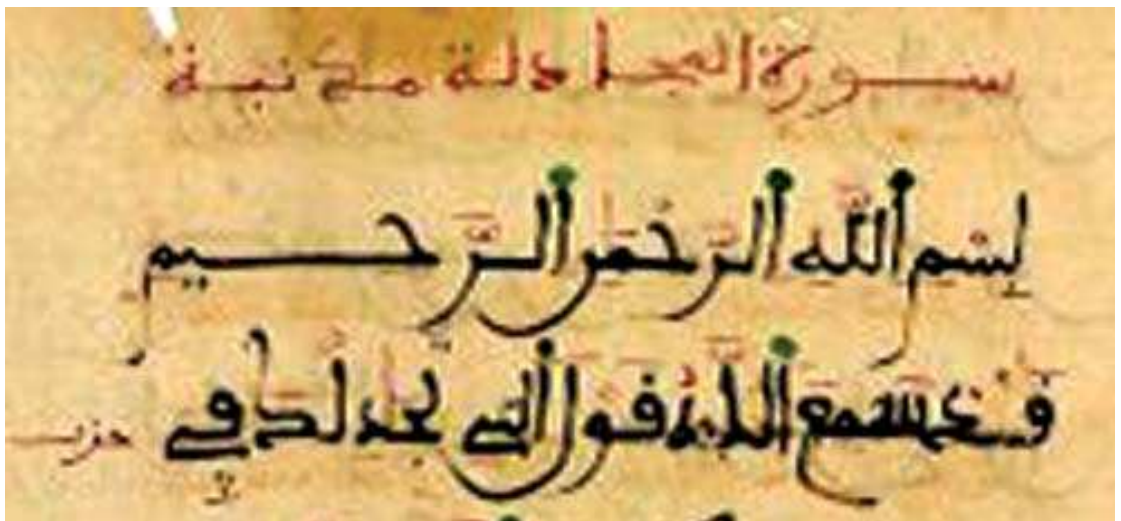 سورة المجادلة مدنية
بِسْمِ اللَّهِ الرَّحْمَنِ الرَّحِيمِ
قَدْ سَمِعَ اللَّهُ قَوْلَ الَّتِي تُجَدِلُكَ فِي
حزب